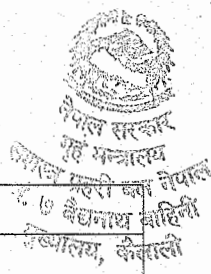 नेपाल सरकार
गृह मन्त्रालय
सशस्त्र प्रहरी बल नेपाल
नं. ७ बैद्यनाथ बाहिनी
मुख्यालय, कैलाली